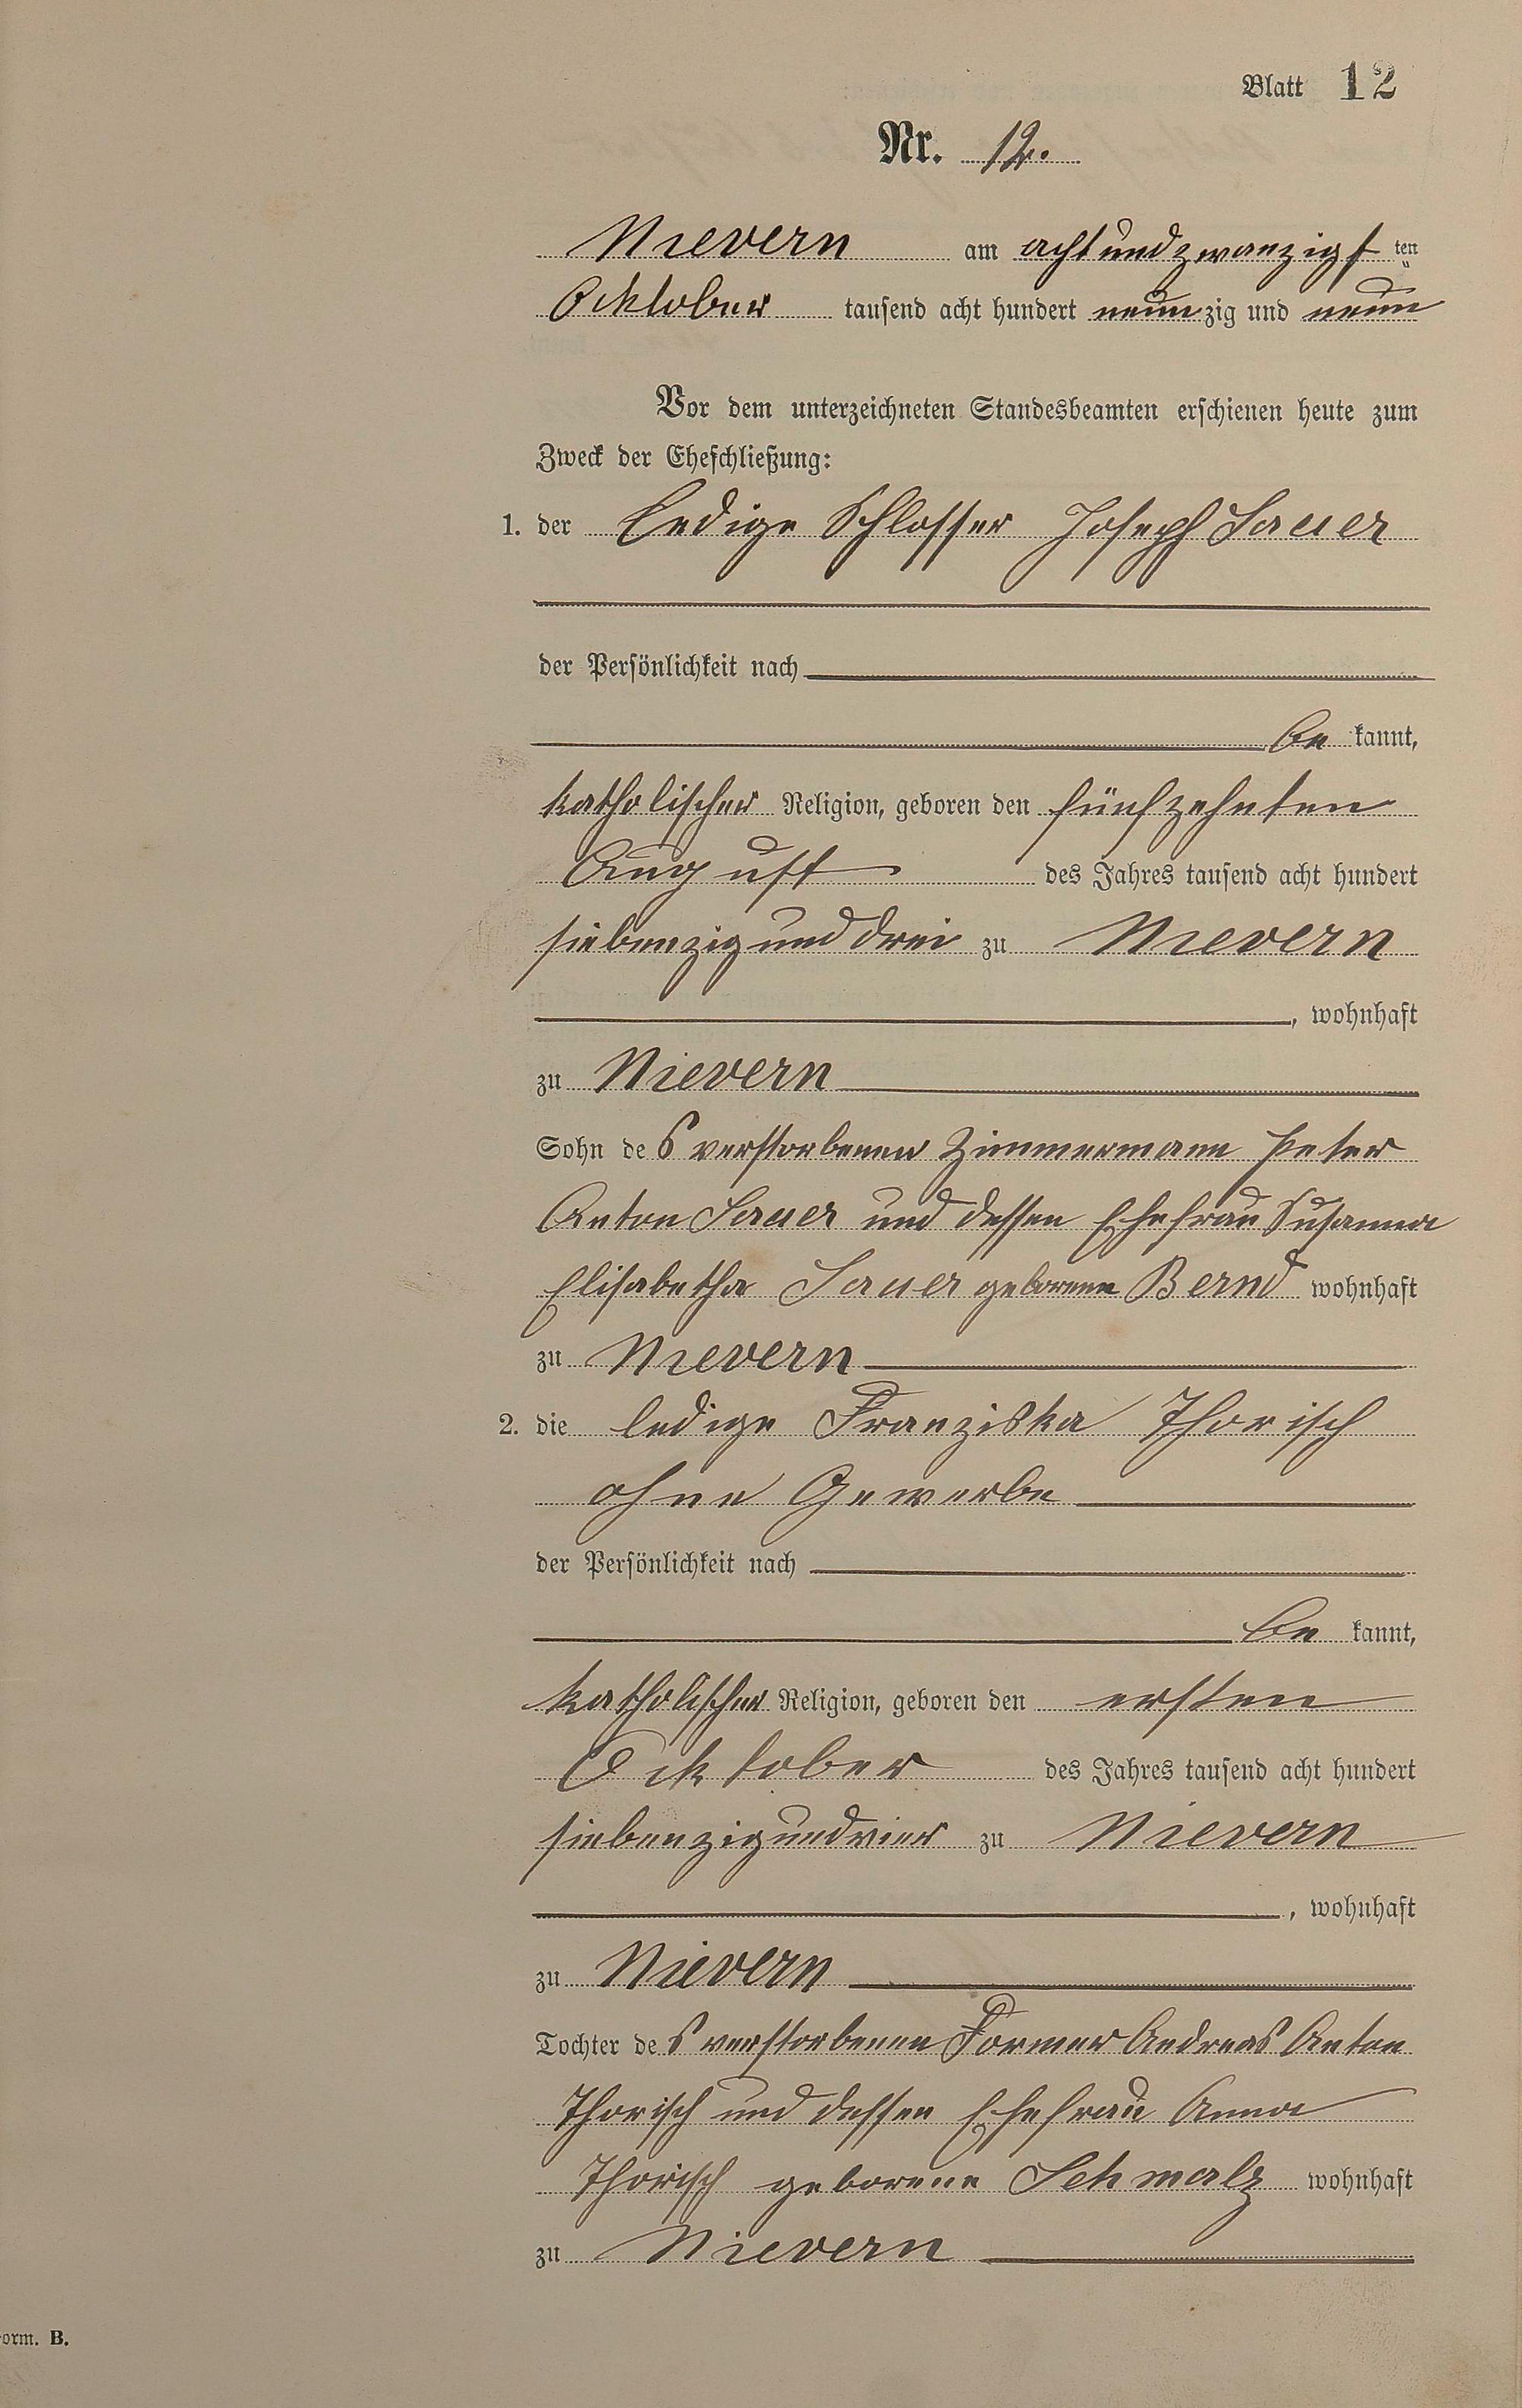 Blatt 12
Nr. 12.
Nievern am achtundzwanzigsten
Oktober tausend acht hundert neunzig und neun
Vor dem unterzeichneten Standesbeamten erschienen heute zum
Zweck der Eheschließung:
1. der ledige Schlosser Joseph Sauer
der Persönlichkeit nach
be kannt,
katholischer Religion, geboren den fünfzehnten
August des Jahres tausend acht hundert
siebenzig und drei zu Nievern
, wohnhaft
zu Nievern
Sohn des verstorbenen Zimmermann Peter
Anton Sauer und dessen Ehefrau Susanna
Elisabetha Sauer geborene Bernd wohnhaft
zu Nievern
2. die ledige Franziska Thorisch
ohne Gewerbe
der Persönlichkeit nach
be kannt,
katholischer Religion, geboren den ersten
Oktober des Jahres tausend acht hundert
siebenzig und vier zu Nievern
, wohnhaft
zu Nievern
Tochter des verstorbenen Former Andreas Anton
Thorisch und dessen Ehefrau Anna
Thorisch geborene Schmalz wohnhaft
zu Nievern
orm. B.